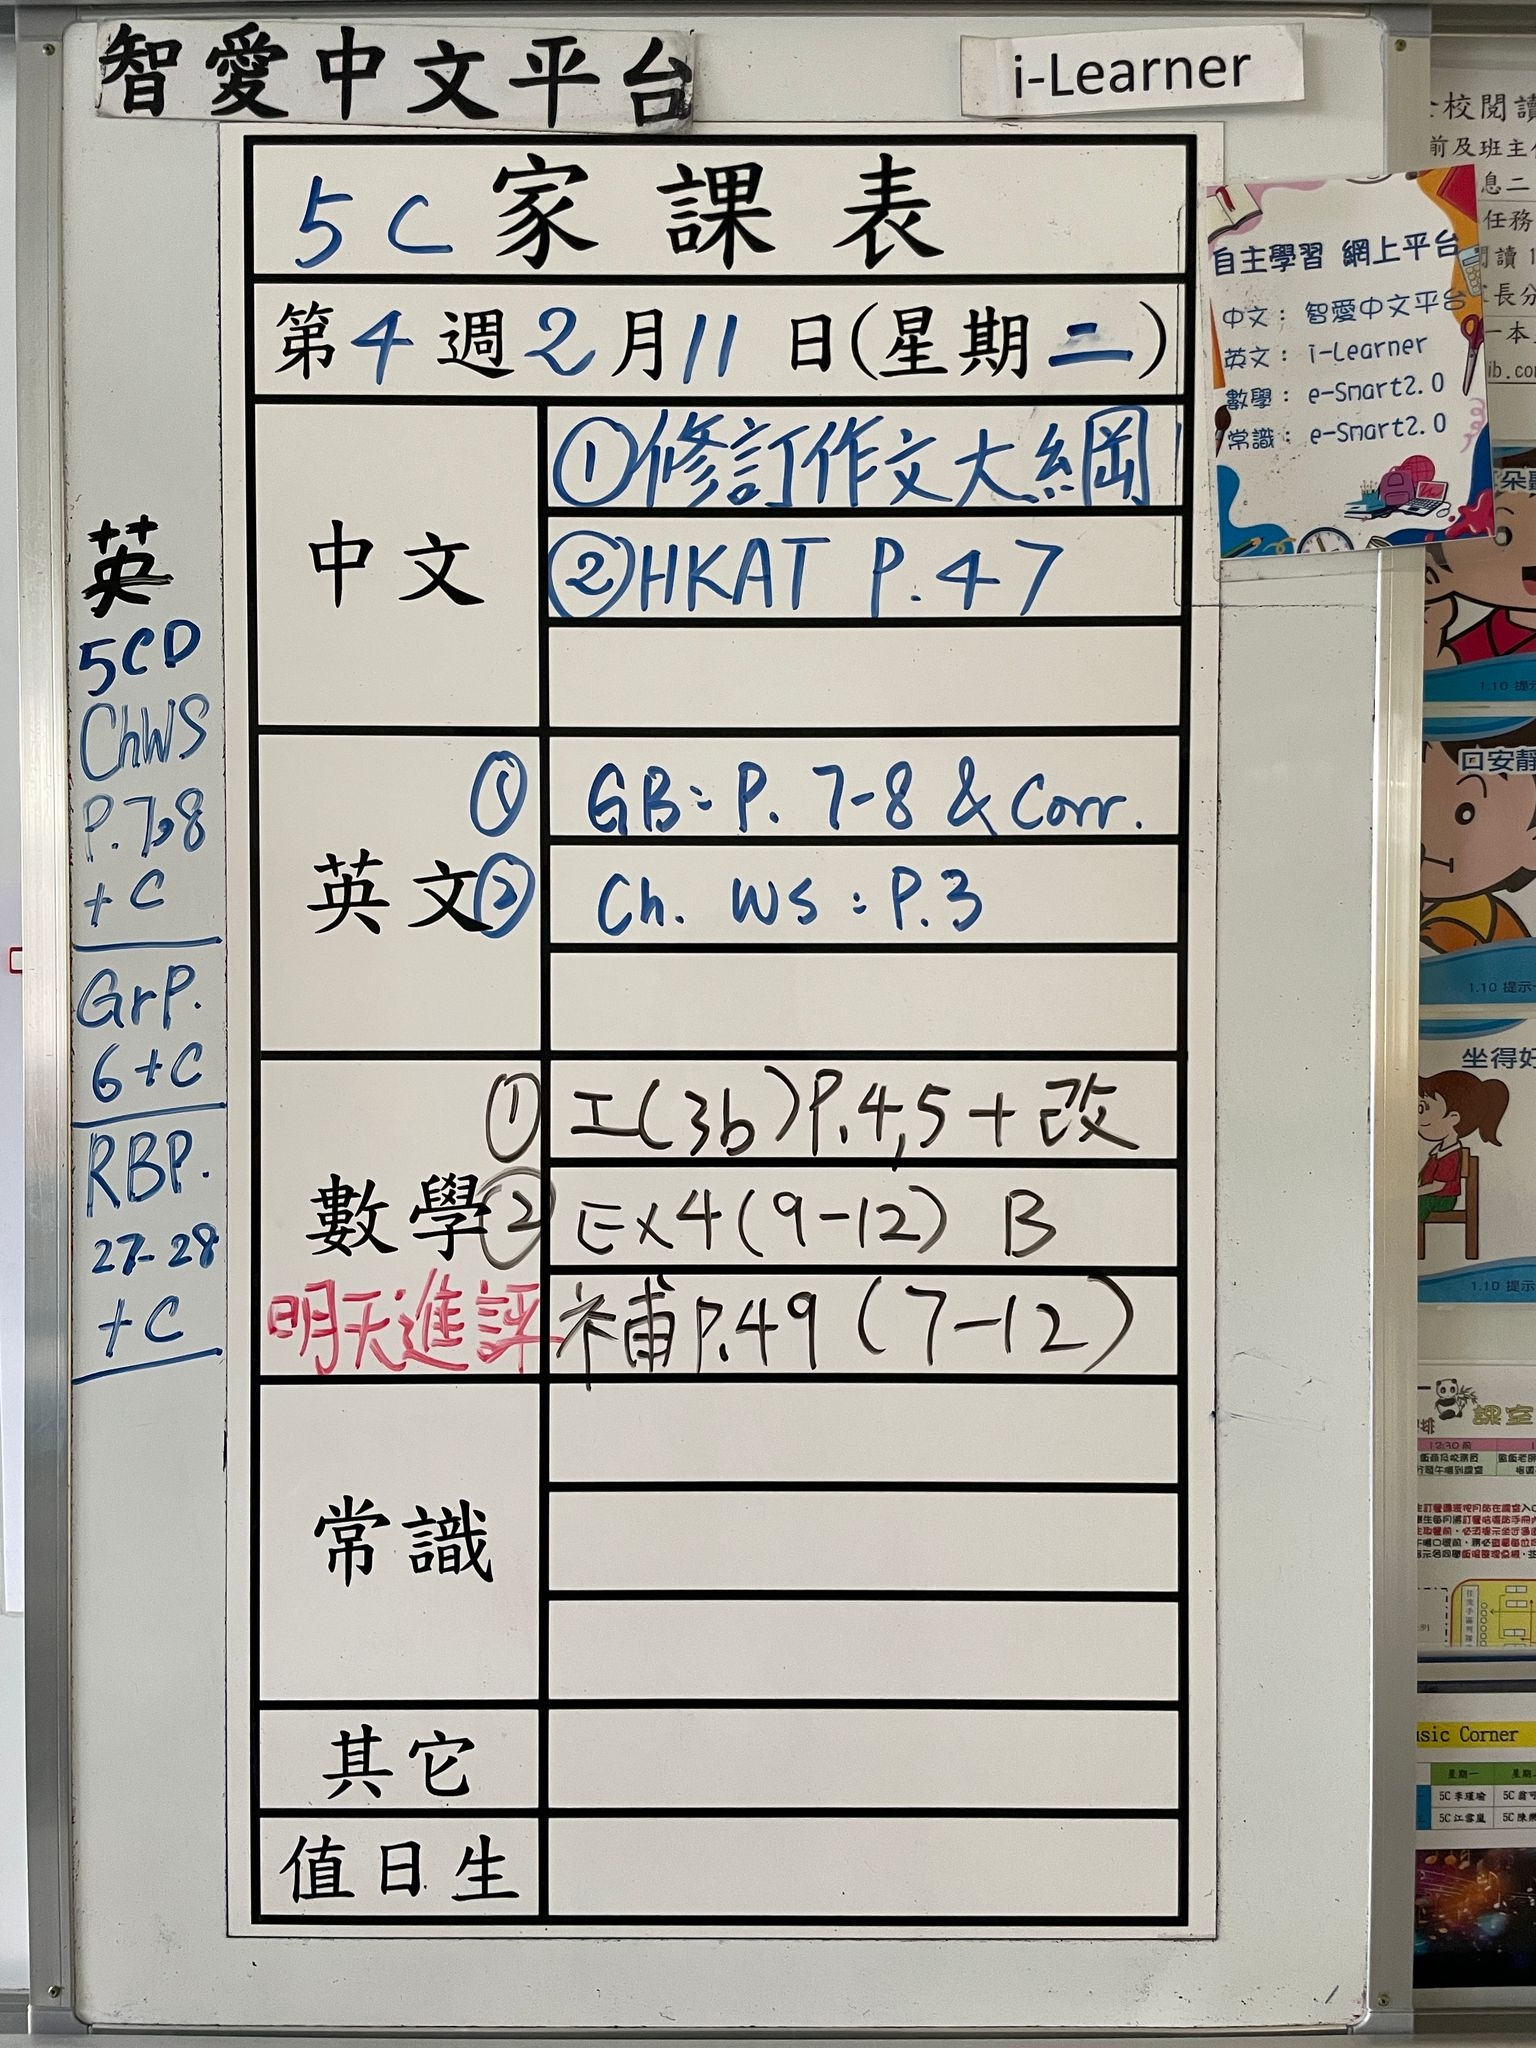 智愛中文平台
i-Learner
5C 家課表
第4週2月11日(星期二)
中文
①修訂作文大綱
②HKAT P.47
英文
① GB: P. 7-8 & Corr.
② Ch. WS: P.3
數學
① 工(3b)P.4,5+改
② Ex4(9-12) B
明天進評
補P.49 (7-12)
常識
其它
值日生
英
5CD
ChWS
P.7,8
+C
GrP.
6+C
RBP.
27-28
+C
自主學習 網上平台
中文: 智愛中文平台
英文: i-Learner
數學: e-Smart2.0
常識: e-Smart2.0
校閱讀
前及班主
息二
任務
閱讀
長分
一本
ib.co
1.10 提示
口安靜
1.10 提示
坐得好
1.10 提示
課室
12:30
sic Corner
星期一 星期
5C
5C 江雪嵐 5C 陳